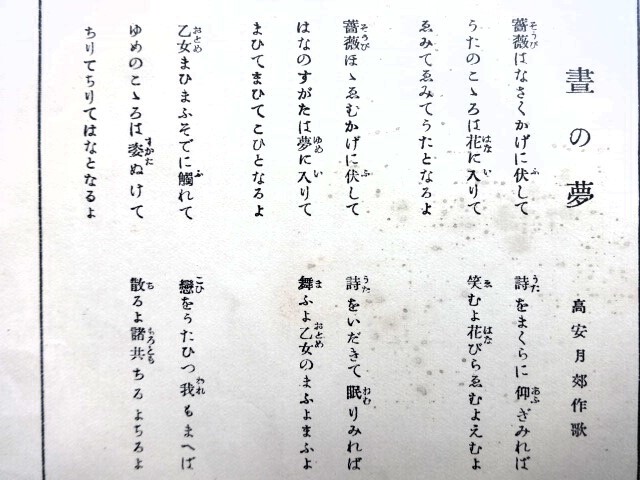 晝の夢
高安月郊作歌
薔薇はなさくかげに伏して
詩をまくらに仰ぎみれば
うたのこゝろは花に入りて
笑むよ花びらゑむよえむよ
ゑみてゑみてうたとなるよ
薔薇ほゝゑむかげに伏して
詩をいだきて眠りみれば
はなのすがたは夢に入りて
舞ふよ乙女のまふよまふよ
まひてまひてこひとなるよ
乙女まひまふそでに觸れて
戀をうたひつ我もまへば
ゆめのこゝろは姿ぬけて
散るよ諸共ちるよちるよ
ちりてちりてはなとなるよ